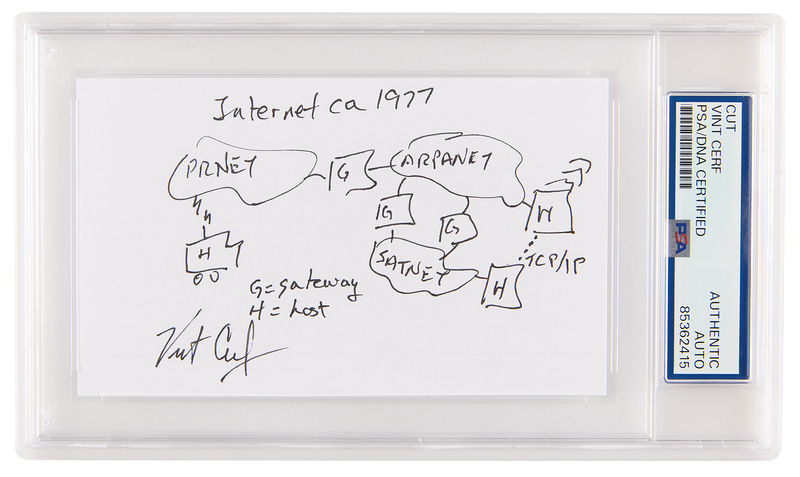 Internet ca 1977
PRNET
G
ARPANET
G
G
H
H
SATNET
TCP/IP
H
G = gateway
H = host
Vint Cerf
CUT
VINT CERF
PSA/DNA CERTIFIED
PSA
AUTHENTIC
AUTO
85362415